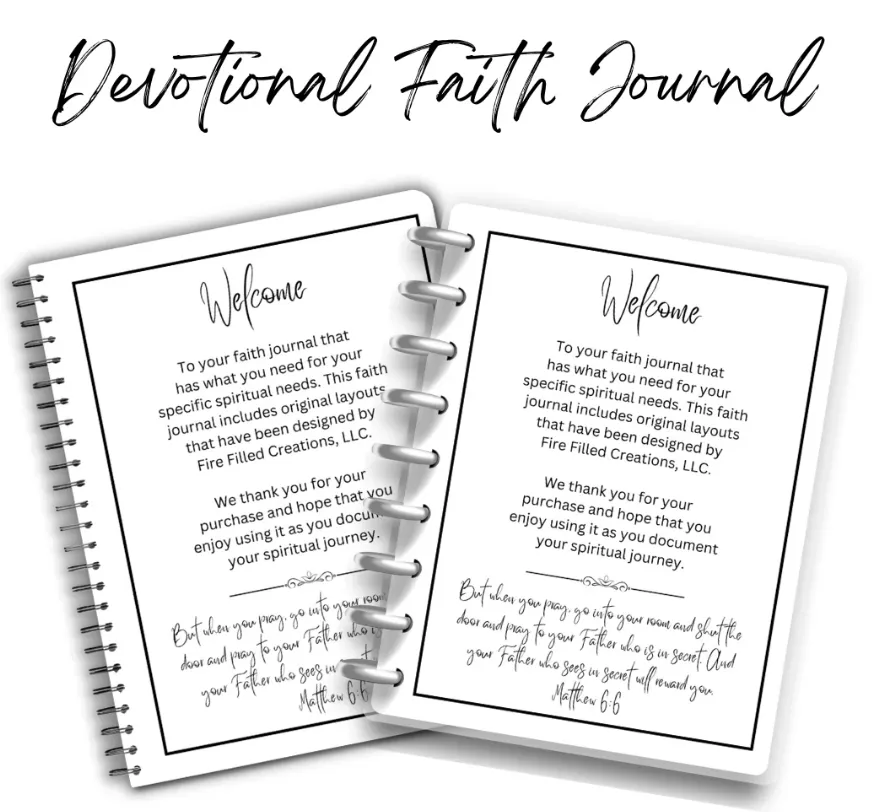 Devotional Faith Journal
Welcome
To your faith journal that
has what you need for your
specific spiritual needs. This faith
journal includes original layouts
that have been designed by
Fire Filled Creations, LLC.
We thank you for your
purchase and hope that you
enjoy using it as you docum
your spiritual journey.
But when you pray, go into your room
door and pray to your Father who i
your Father who sees in
Matthew 6:6
Welcome
To your faith journal that
has what you need for your
specific spiritual needs. This faith
journal includes original layouts
that have been designed by
Fire Filled Creations, LLC.
We thank you for your
purchase and hope that you
enjoy using it as you document
your spiritual journey.
But when you pray, go into your room and shut the
door and pray to your Father who is in secret. And
your Father who sees in secret will reward you.
Matthew 6:6